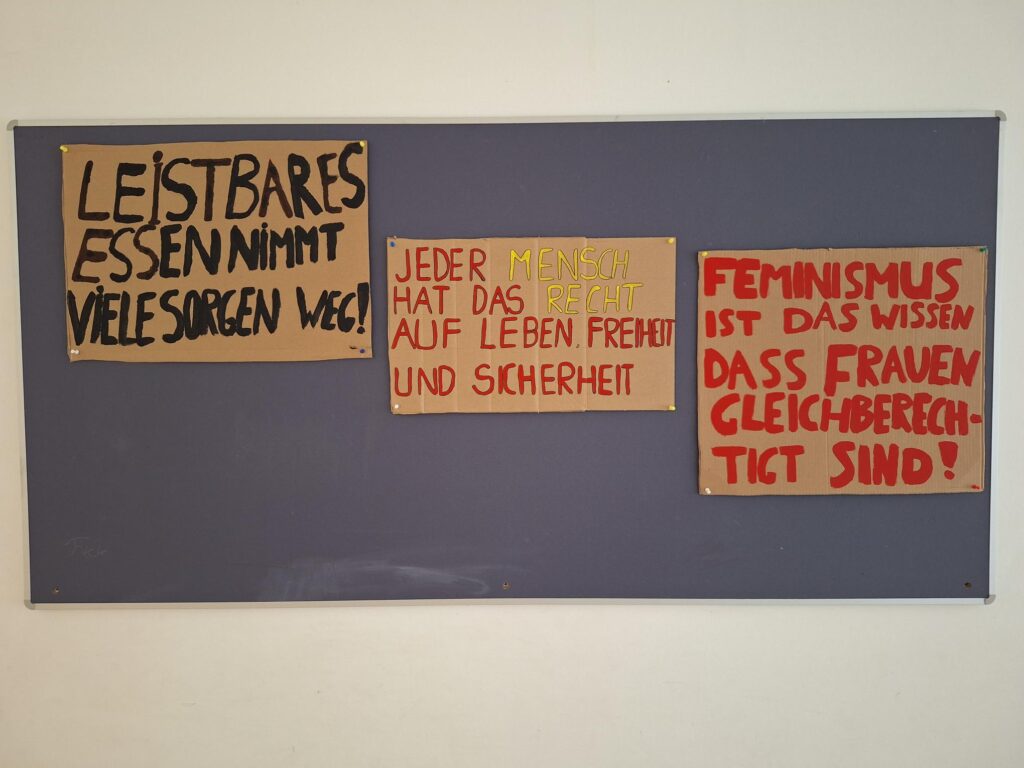 LEISTBARES
ESSEN NIMMT
VIELE SORGEN WEG!
JEDER MENSCH
HAT DAS RECHT
AUF LEBEN, FREIHEIT
UND SICHERHEIT
FEMINISMUS
IST DAS WISSEN
DASS FRAUEN
GLEICHBERECH-
TIGT SIND!